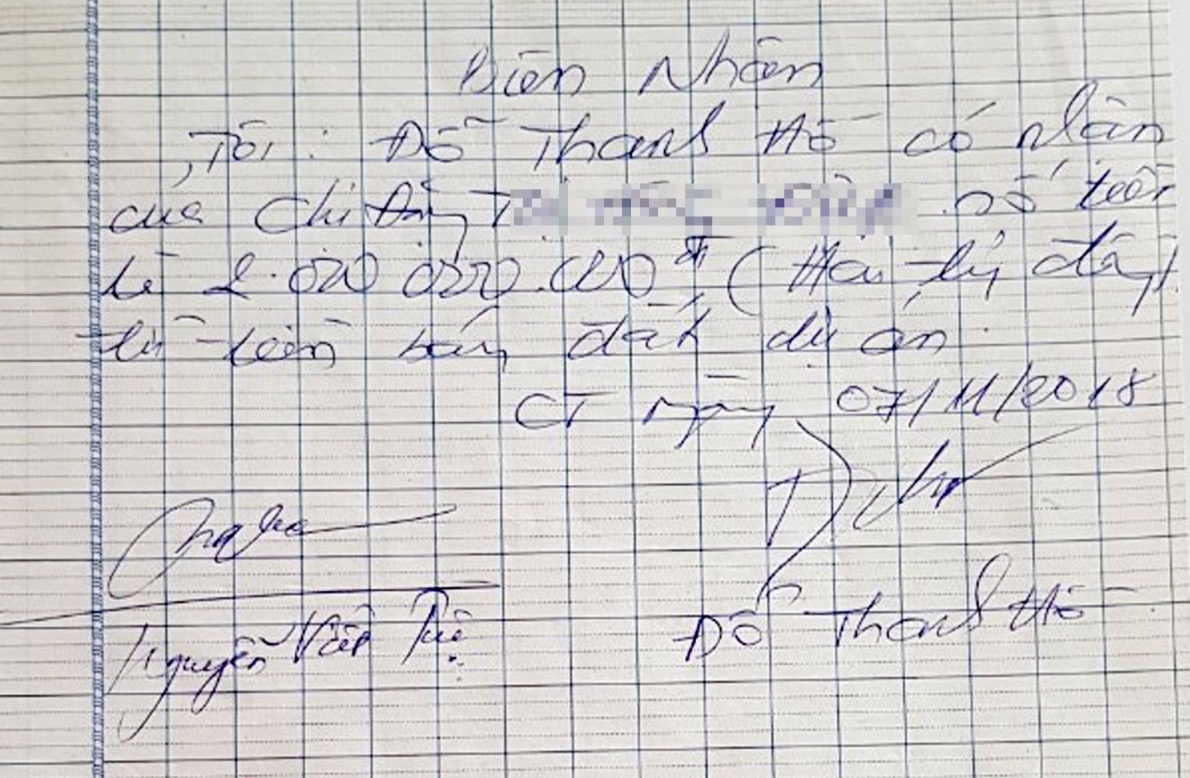 Biên Nhận
Tôi: Đỗ Thanh Hồ có nhận
của Chị Đặng số tiền
là 2.000.000.000đ (Hai tỷ đồng)
từ tiền bán đất dự án
CT ngày 07/11/2018
Nguyễn Viết Tuệ Đỗ Thanh Hồ